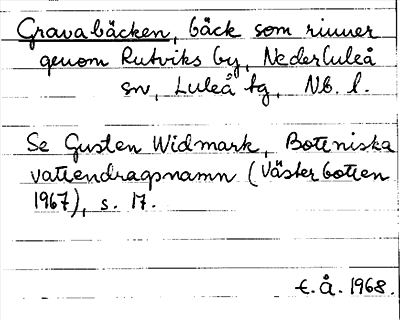 Gravabäcken, bäck som rinner
genom Rutviks by, Nederluleå
sn, Luleå tg, Nb. l.
Se Gusten Widmark, Botniska
vattendragsnamn (Västerbotten
1967), s. 17.
t. Å. 1968.